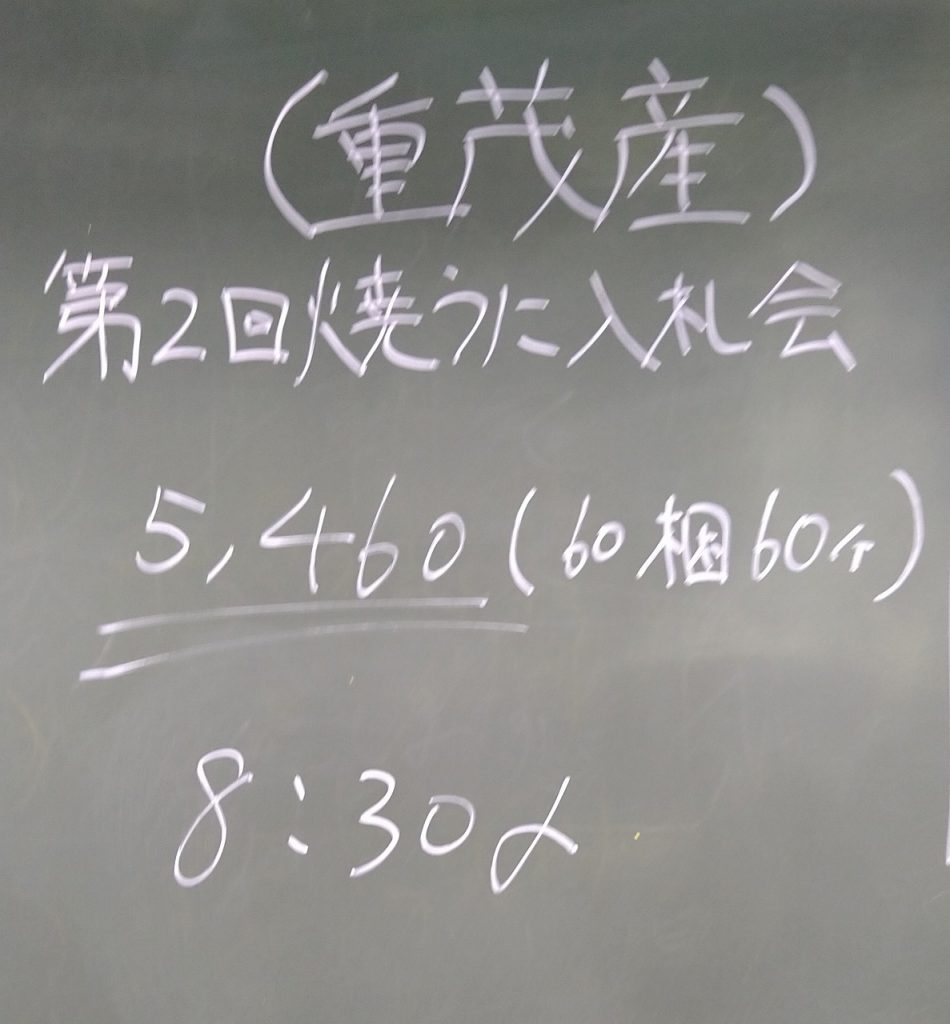 (重茂産)
第2回焼うに入札会
5,460(60梱60ケ)
8:30〆